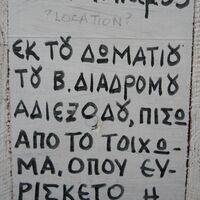 ?LOCATION?
ΕΚ ΤΟΥ ΔΩΜΑΤΙΟΥ
ΤΟΥ Β. ΔΙΑΔΡΟΜΟΥ
ΑΔΙΕΞΟΔΟΥ, ΠΙΣΩ
ΑΠΟ ΤΟ ΤΟΙΧΩ-
ΜΑ, ΟΠΟΥ ΕΥ-
ΡΙΣΚΕΤΟ Η